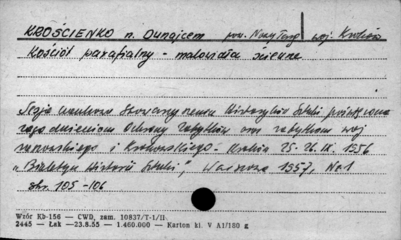 KROŚCIENKO n. Dunajcem pow. Nowy Targ woj. Kraków
Kościół parafialny - malowidła ścienne
Sesja naukowa Stowarzyszenia Historyków Sztuki poświęcona
zagadnieniom Ochrony Zabytków oraz zabytkom woj
rzeszowskiego i krakowskiego - Kraków 25-26.IX.1956
"Biuletyn Historii Sztuki", Warszawa 1957, No 1
str. 105-106
Wzór Kb-156 — CWD, zam. 10837/T-1/II.
2445 — Łsk —23.8.55 — 1.460.000 — Karton kl. V A1/180 g